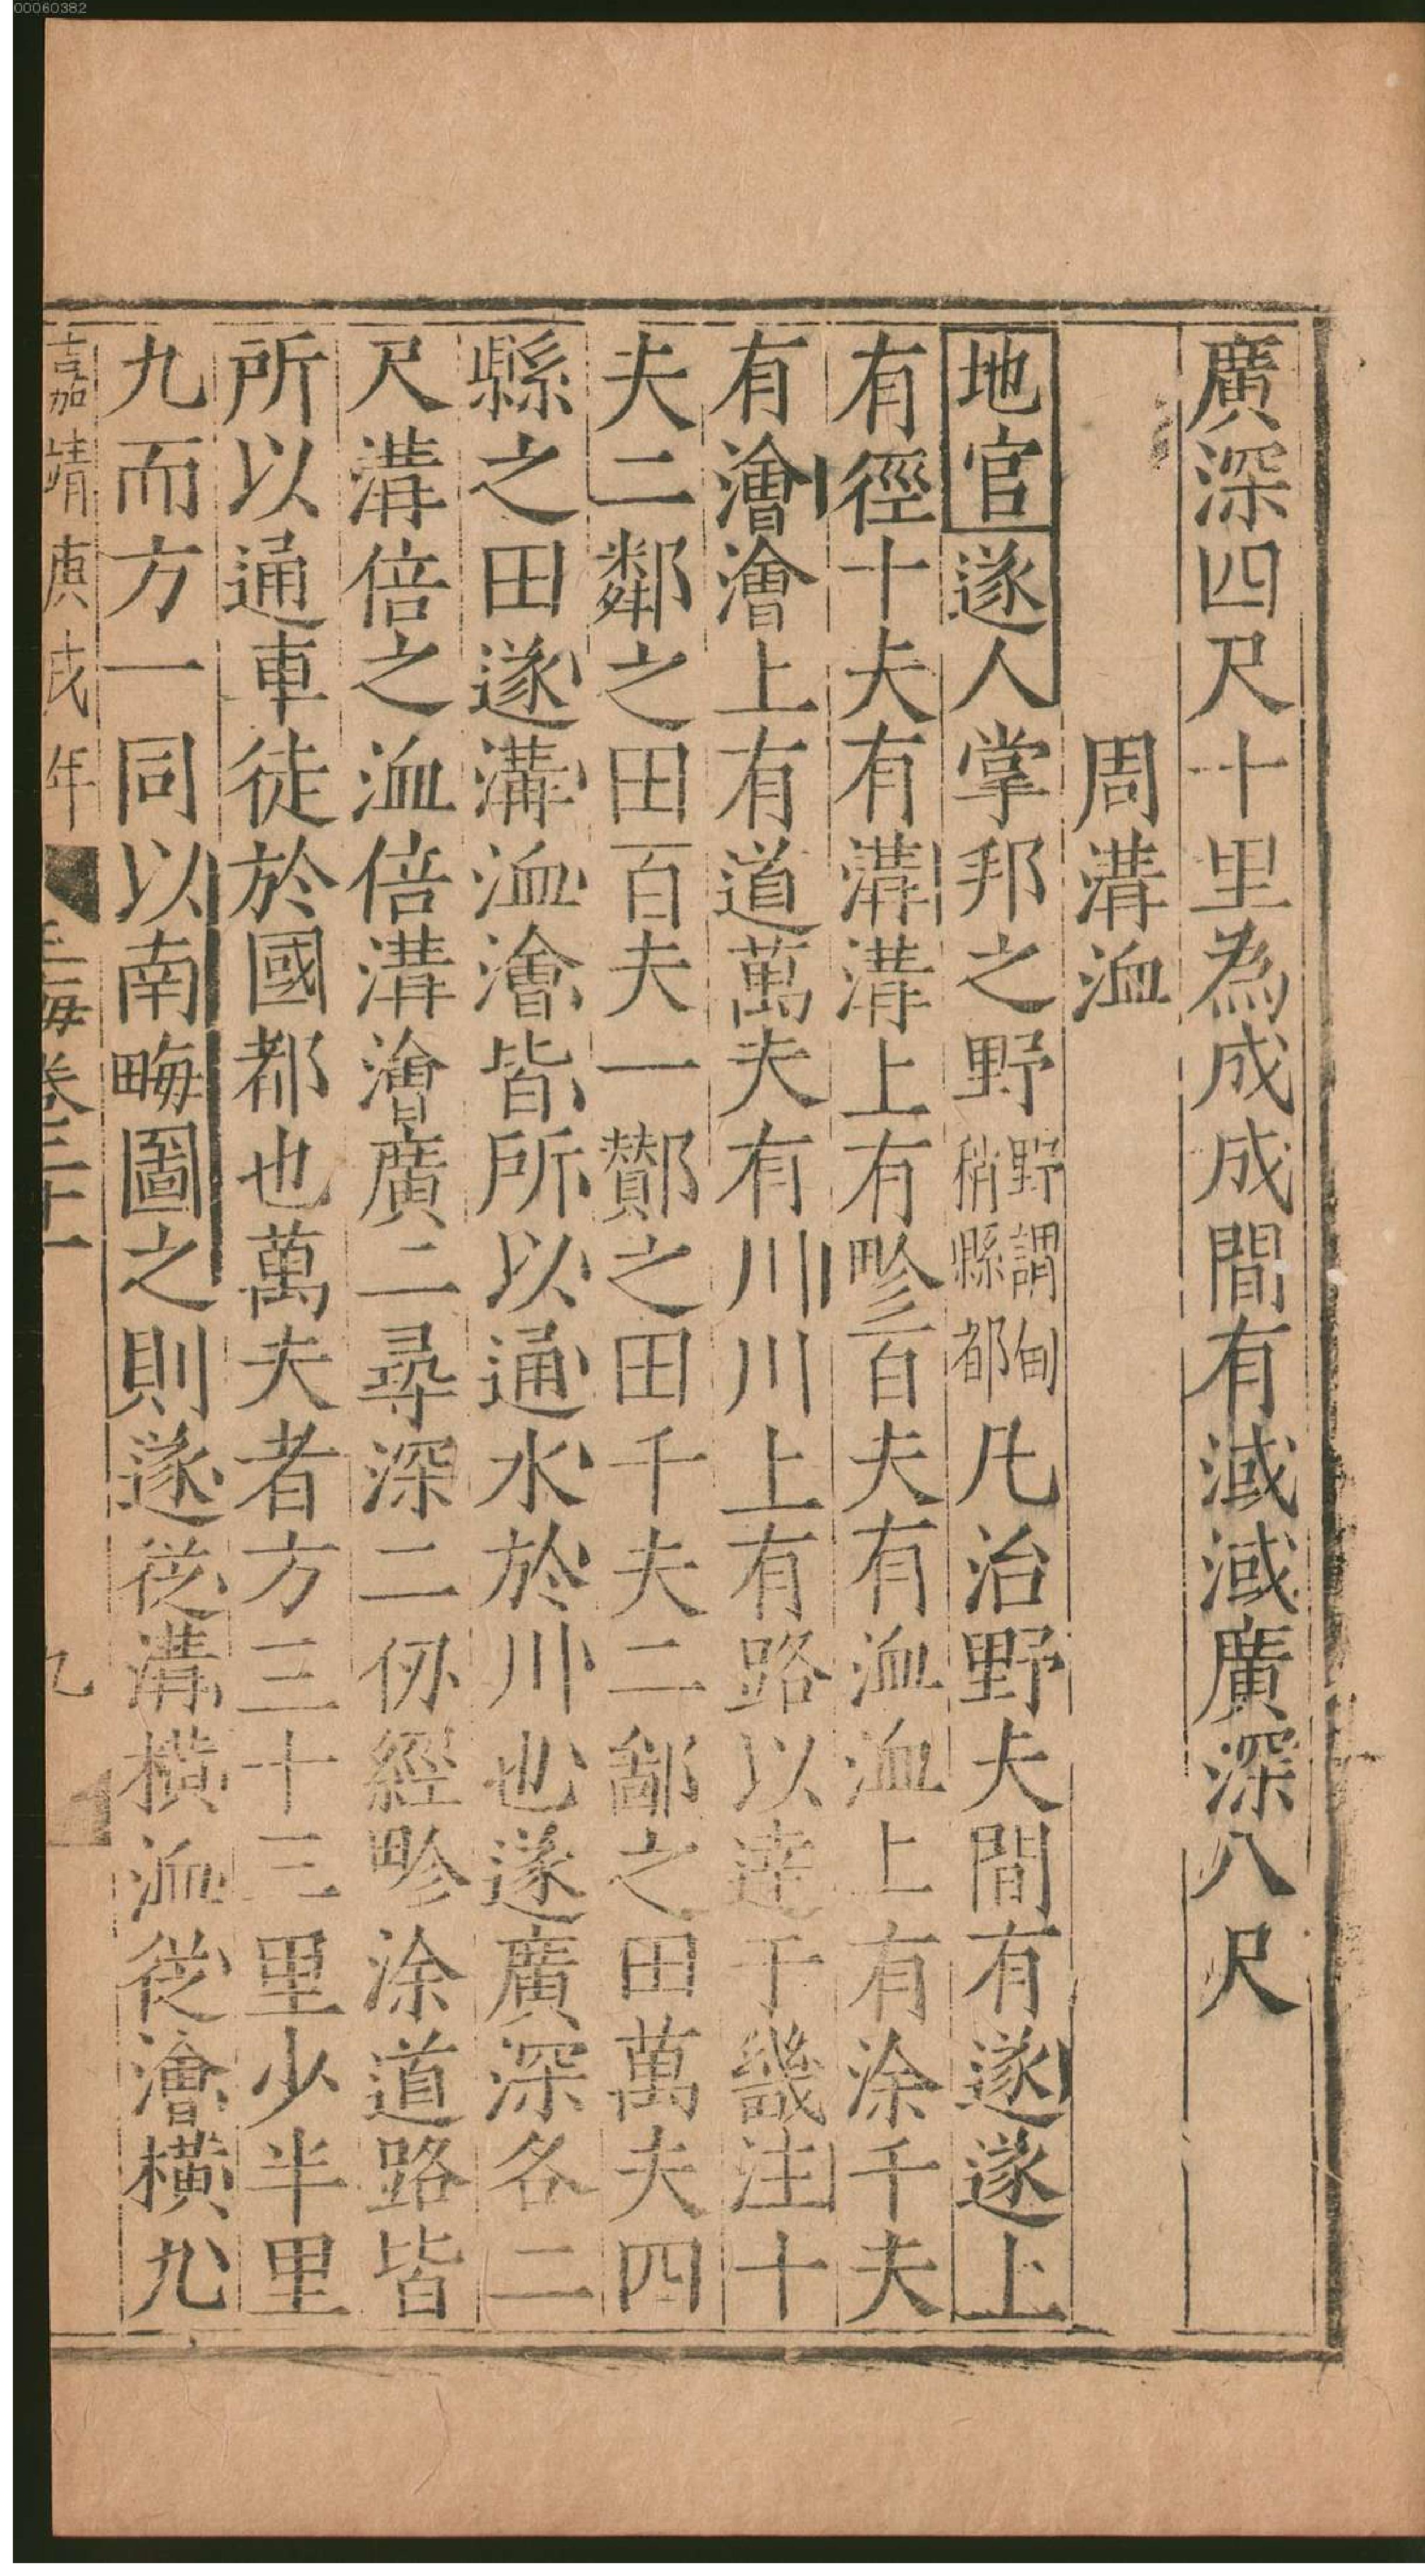 00060382
廣深四尺十里為成成間有淢淢廣深八尺
周溝洫
地官遂人掌邦之野野謂甸稍縣都凡治野夫間有遂遂上
有徑十夫有溝溝上有畛百夫有洫洫上有涂千夫
有澮澮上有道萬夫有川川上有路以達于畿注十
夫二鄰之田百夫一酇之田千夫二鄙之田萬夫四
縣之田遂溝洫澮皆所以通水於川也遂廣深各二
尺溝倍之洫倍溝澮廣二尋深二仞經畛涂道路皆
所以通車徒於國都也萬夫者方三十三里少半里
九而方一同以南畮圖之則遂從溝橫洫從澮橫九
嘉靖庚戌年 玉海卷二十一 九